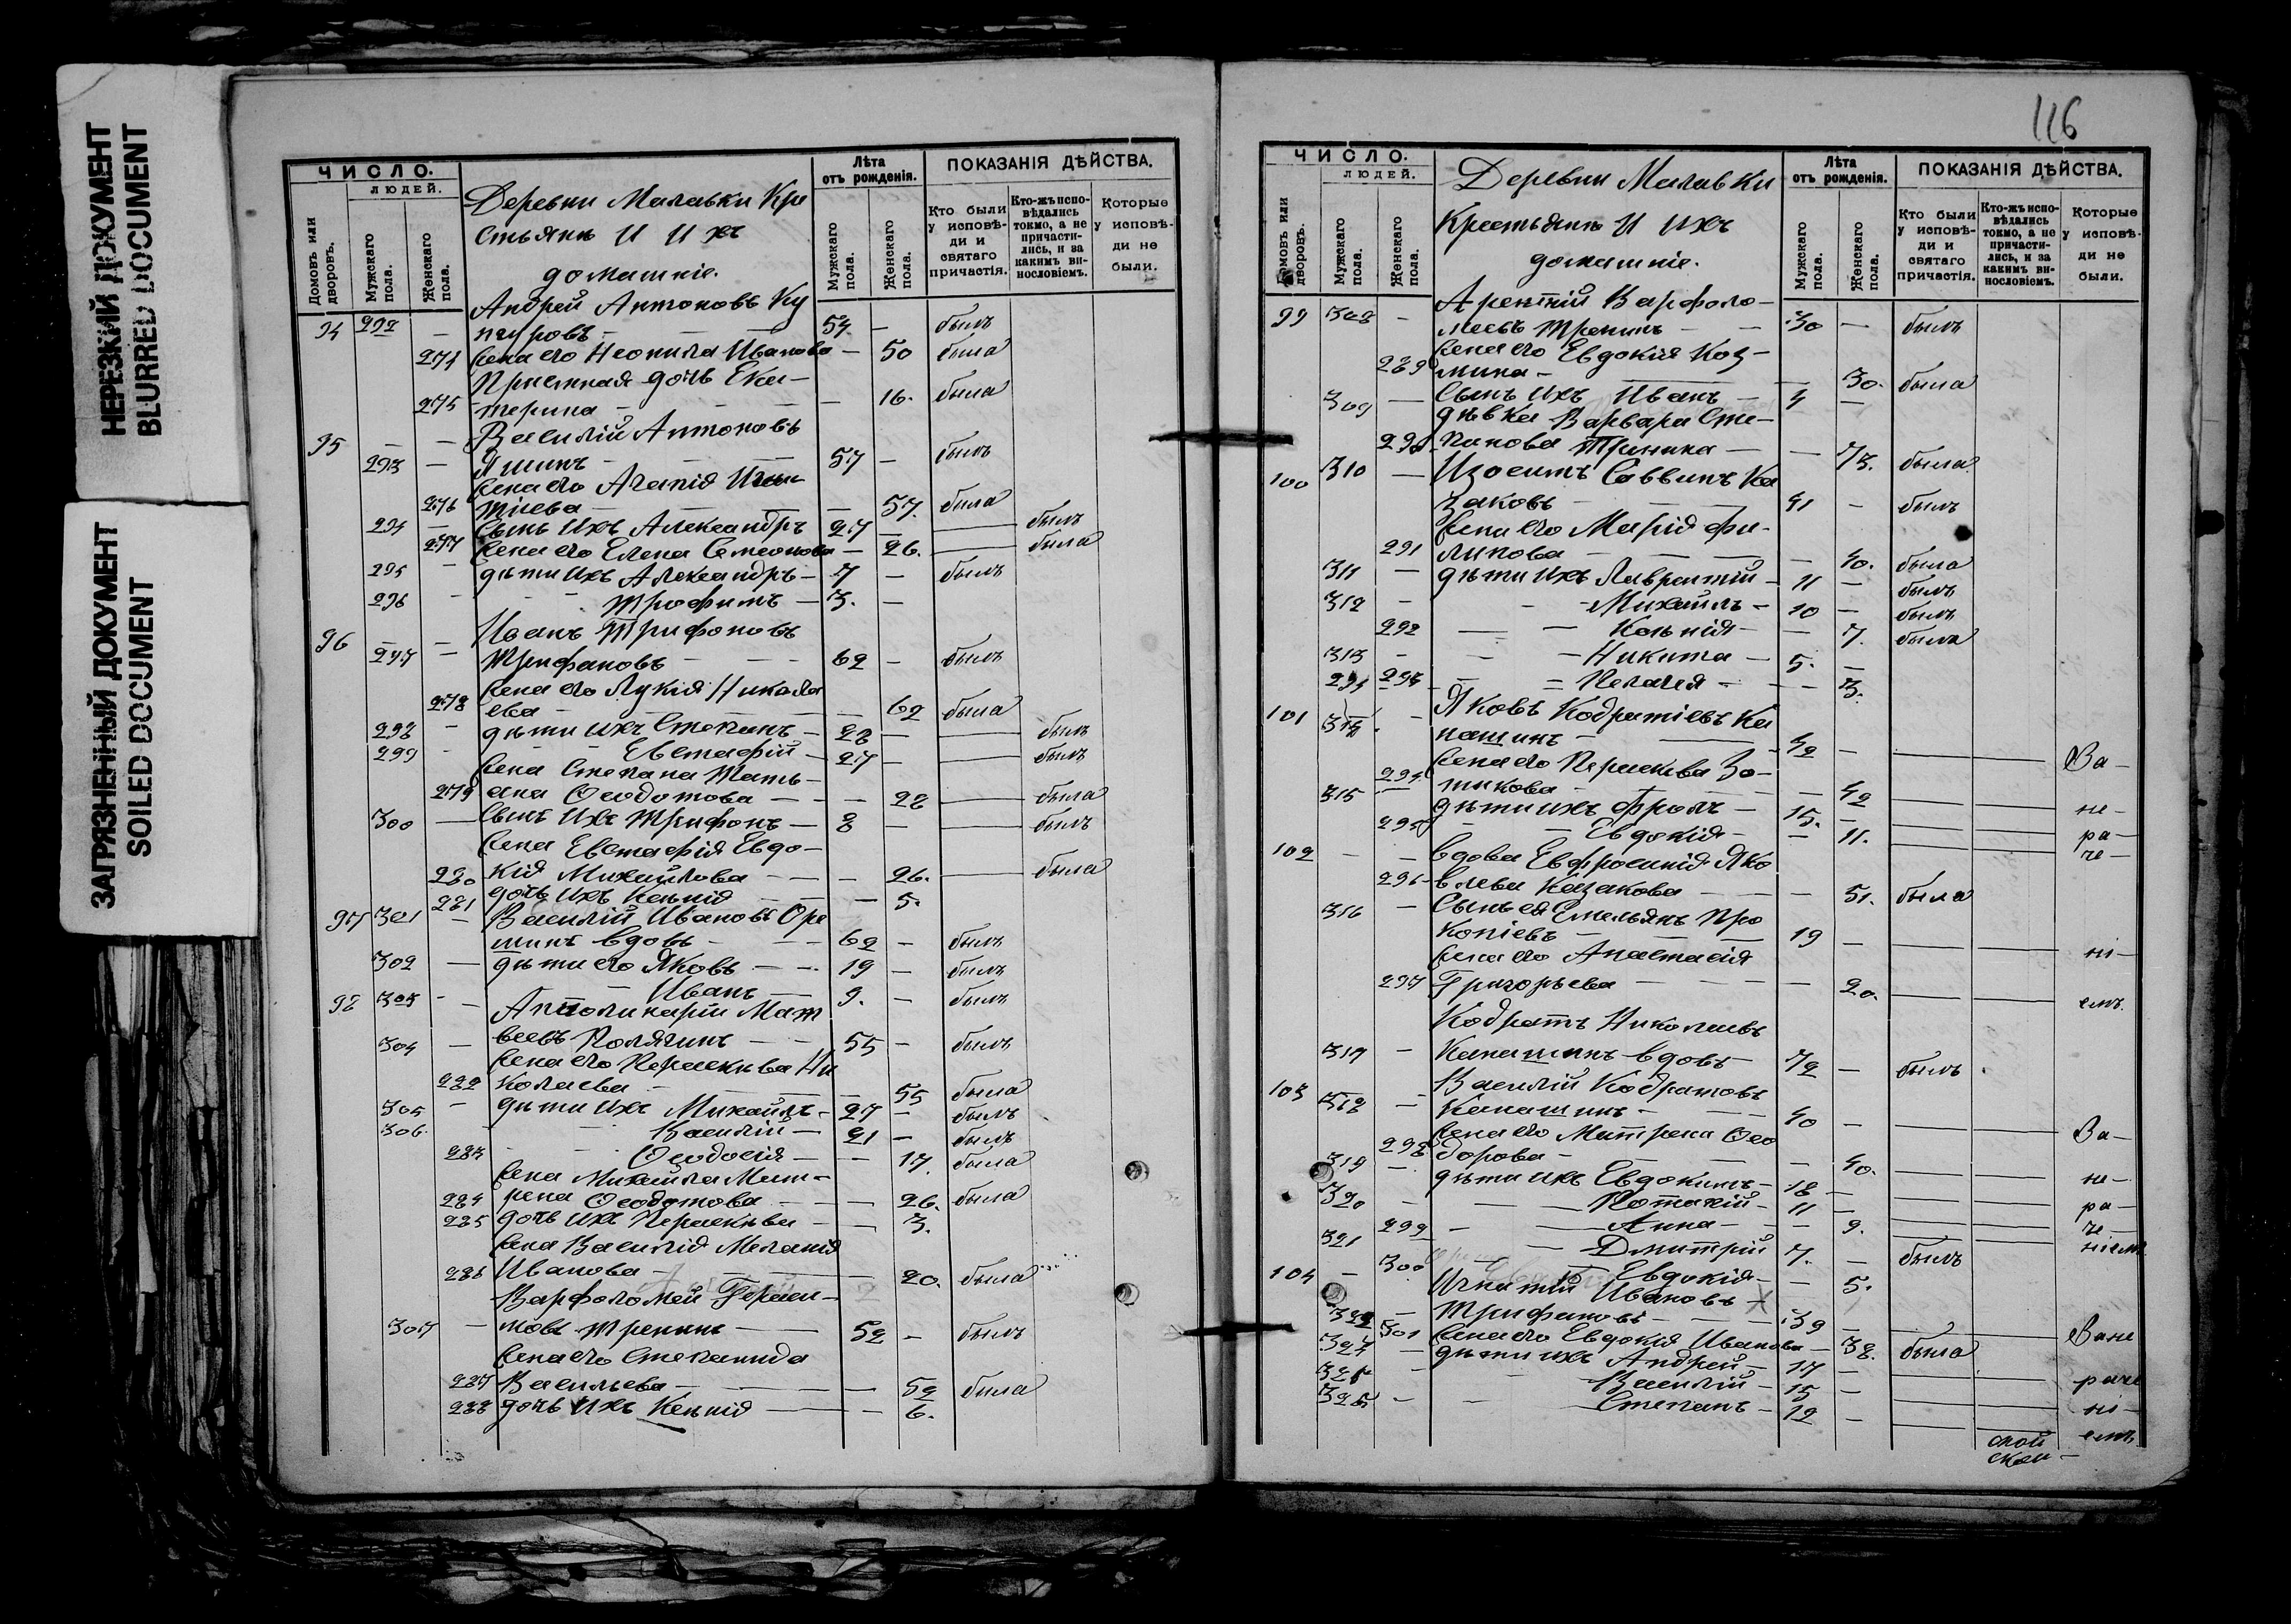 НЕРЕЗКИЙ ДОКУМЕНТ
BLURRED DOCUMENT
ЗАГРЯЗНЕННЫЙ ДОКУМЕНТ
SOILED DOCUMENT
ЧИСЛО.
ЛЮДЕЙ.
Домовъ или дворовъ.
Мужскаго пола.
Женскаго пола.
Деревни Малавки Кре
стьяне И Ихъ
домашніе.
Лѣта отъ рожденія.
Мужскаго пола.
Женскаго пола.
ПОКАЗАНІЯ ДѢЙСТВА.
Кто были у исповѣди и святаго причастія.
Кто-жъ исповѣдались токмо, а не причастились, и за какимъ винословіемъ.
Которые у исповѣди не были.
Андрей Антоновъ
94 292 — 54. — былъ
274 жена его Неонила Иванова — 50 была
Приемная дочь Ека-
275 терина — — 16. была
95 Василій Антоновъ
293 — Яшинъ — 57 — былъ
жена его Агапія
276 — 57. была
294 — сынъ ихъ Александръ 27 — былъ
277 жена его Елена Семеонова — 26. — была
295 — дѣти ихъ Александръ — 7 — былъ
296 - Трофимъ — 3. —
96 — Иванъ Трифоновъ
297 — Трифановъ — 62 — былъ
жена его Лукія Никола
278 ева — 62 была
298 — дѣти ихъ Степанъ — 28 — былъ
299 - Евстафій — 27 — былъ
жена Степана Тать-
279 яна Ѳеодотова — — 28 — была
300 — сынъ ихъ Трифонъ — 8 — былъ
жена Евстафія Евдо-
280 кія Михайлова — — 26. — была
281 дочь ихъ Ксенія — — 5.
97 301 — Василій Ивановъ
шинъ вдовъ — 62 — былъ
302 — дѣти его Яковъ — 19 — былъ
303 - Иванъ — 9. — былъ
98 — Апполинарій Мат
304 — веевъ Полягинъ — 55 — былъ
жена его Параскева Ни
282 колаева — 55 была
305 — дѣти ихъ Михаилъ — 27 — былъ
306. Василій — 21 — былъ
283 Ѳеодосія — — 17. была
жена Михаила Мат-
284 рена Ѳеодотова — — 26. была
285 дочь ихъ Параскева — — 3.
жена Василія Меланія
286 Иванова — 20. была
Варфоломей Герас-
307 — мовъ Тренинъ — 52 — былъ
жена его Степанида
287 Васильева — 52 была
288 дочь ихъ Ксенія — 6.
116
ЧИСЛО.
ЛЮДЕЙ.
Домовъ или дворовъ.
Мужскаго пола.
Женскаго пола.
Деревни Малавки
Крестьяне И ихъ
домашніе.
Лѣта отъ рожденія.
Мужскаго пола.
Женскаго пола.
ПОКАЗАНІЯ ДѢЙСТВА.
Кто были у исповѣди и святаго причастія.
Кто-жъ исповѣдались токмо, а не причастились, и за какимъ винословіемъ.
Которые у исповѣди не были.
Варфоло-
99 308 — меевъ Тренинъ — 30 — былъ
жена его Евдокія Коз-
289 мина — 30. была
309 — сынъ ихъ Иванъ — 4 —
дѣвка Варвара Сте-
290 панова — 73. была
100 310 — Изосимъ Саввинъ Ка
заковъ — 41 — былъ
жена его Марія Фи-
291 липова — 40. была
311 — дѣти ихъ Лаврентій — 11 — былъ
312 - Михаилъ — 10 — былъ
292 — Ксенія — — 7. была
313 - Никита — 5. —
293 Пелагея — — 3.
101 Яковъ Кодратіевъ Ка
нашинъ — 42 — За—
жена его Параскева Зо-
294 тикова — 42 не—
315 дѣти ихъ Фролъ — 15. — ра—
295 Евдокія — — 11. че—
102 — — вдова Евфросинія Яко
296 влева Казакова — 51. была
316 — сынъ ея Емельянъ Про
копіевъ — 19 — ні—
жена его Анастасія
297 Григорьева — 20. емъ.
Кодратъ Николаевъ
317 — Канашинъ вдовъ — 72 — былъ
103 Василій Кодратовъ
318 — Канашинъ — 40 — За—
жена его Матрена Ѳео
298 дорова — 40. не—
319 — дѣти ихъ Евдокимъ — 18 — ра—
320 - Потапій — 11 — че—
299 — Анна — — 9. ніемъ
321 Дмитрій 7. — былъ
300 Евдокія — — 5.
104 — Игнатій Ивановъ —
322 — Трифановъ — 39 — Зане
301 жена его Евдокія Иванова — 38. была
323 — дѣти ихъ Андрей — 17 — раче
324 - Василій — 15 — ні—
325 - Степанъ — 12 — емъ